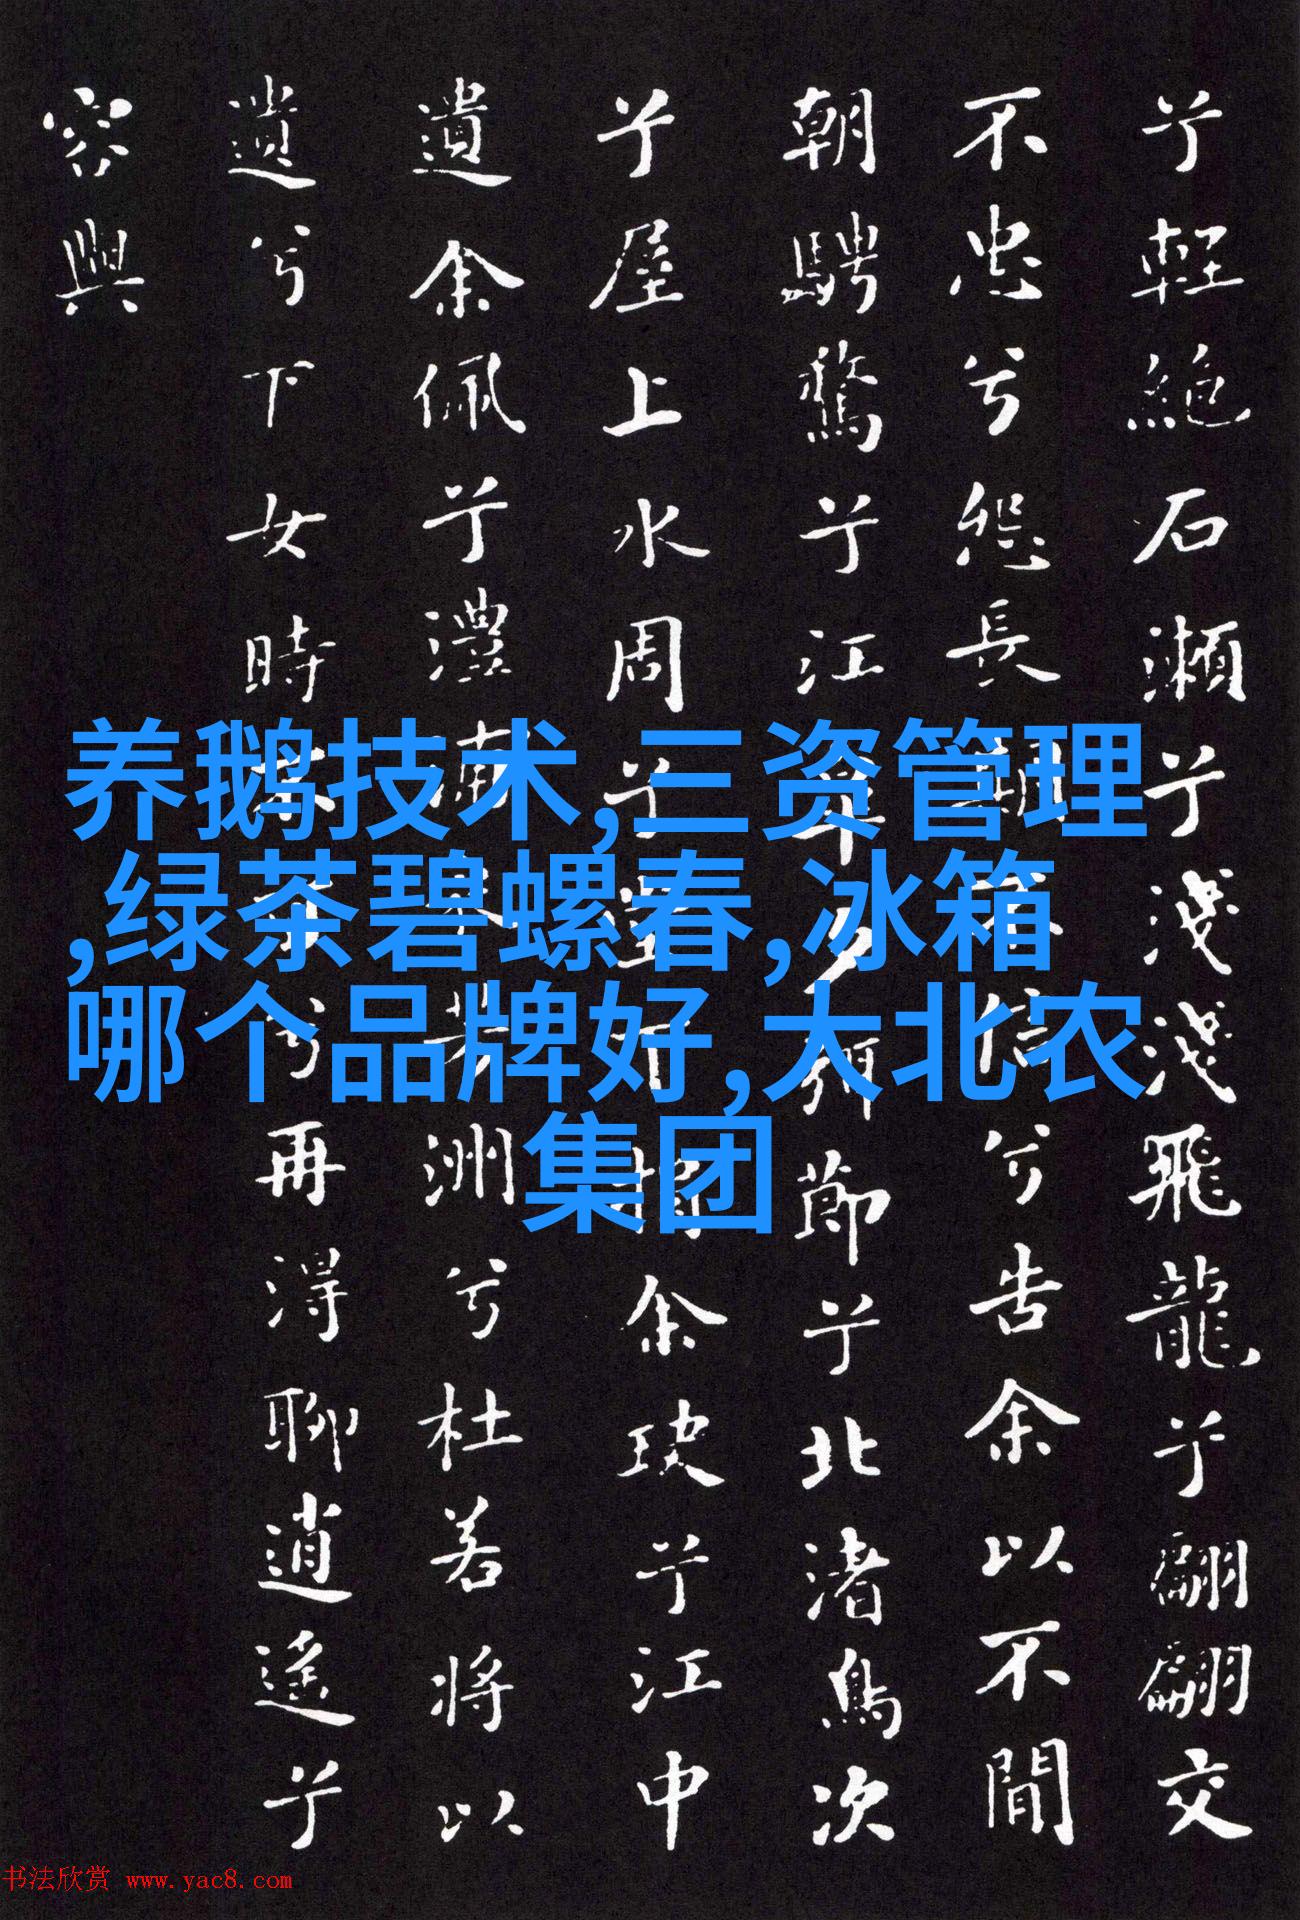 兮輕絕石瀨兮淺淺飛龍兮翩翩交
不忠兮怨長期不信兮告余以不閒
朝騁騖兮江皋夕弭節兮北渚鳥次
兮屋上水周兮堂下捐余玦兮江中
遺余佩兮澧浦采芳洲兮杜若將以
遺兮下女時不可兮再得聊逍遙兮
容與
养鹅技术,三资管理
,绿茶碧螺春,冰箱
哪个品牌好,大北农
集团
书法欣赏 www.yac8.com